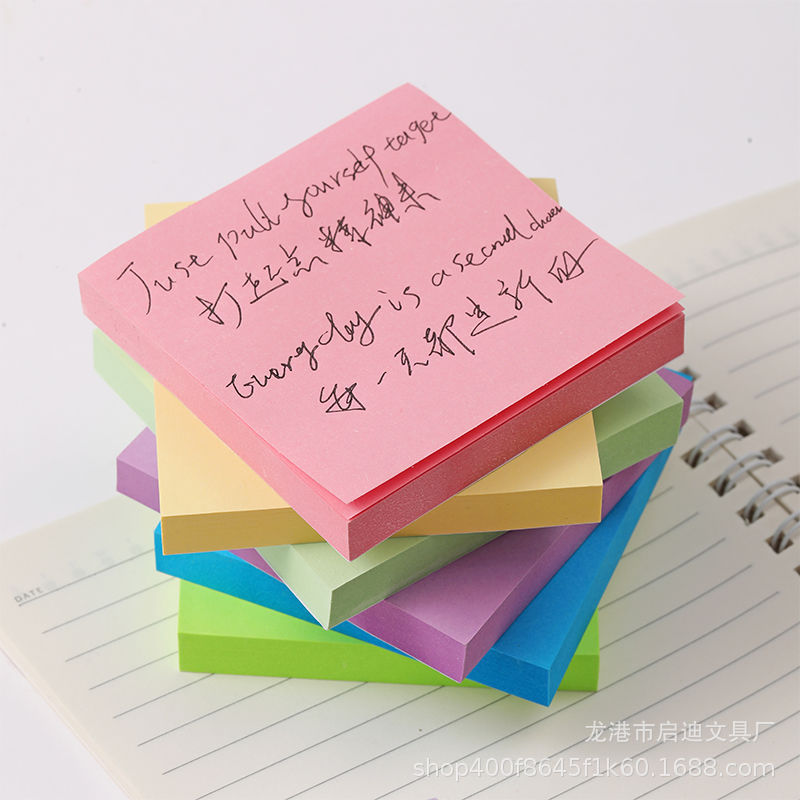 Juse pull yourself togee
打起点精神来
Every day is a second chan
每一天都是新的
DATE
龙港市启迪文具厂
shop400f8645f1k60.1688.com